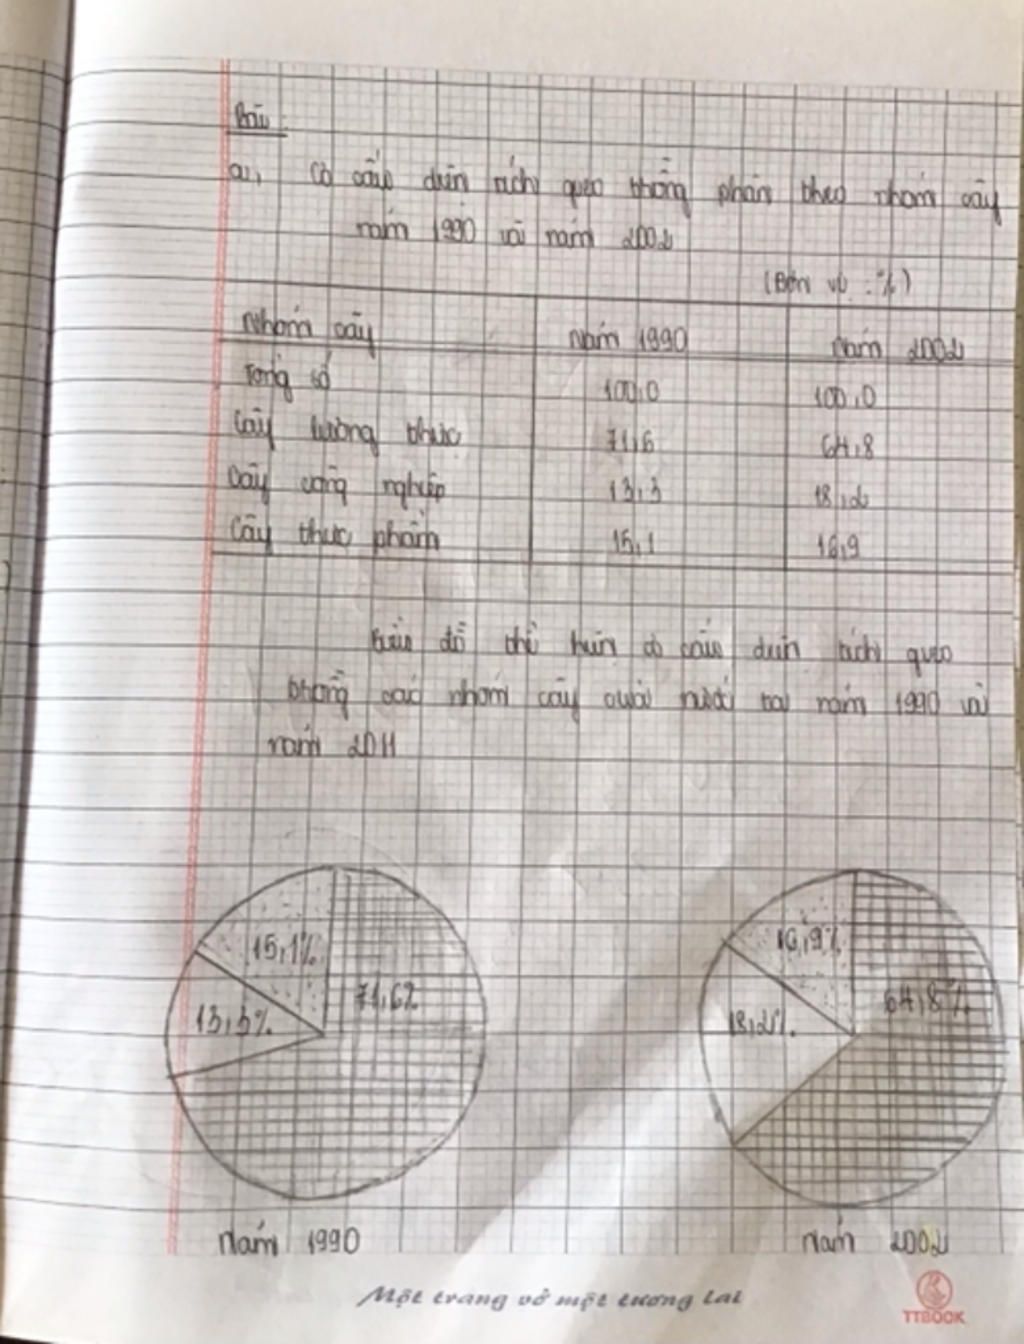 Bài
a, Cơ cấu diện tích gieo trồng phân theo nhóm cây
năm 1990 và năm 2002
(Đơn vị : %)
Nhóm cây Năm 1990 Năm 2002
Tổng số 100,0 100,0
Cây lương thực 71,6 64,8
Cây công nghiệp 13,3 18,2
Cây thực phẩm 15,1 16,9
Biểu đồ thể hiện cơ cấu diện tích gieo
trồng các nhóm cây của nước ta năm 1990 và
năm 2011
15,1% 71,6%
13,3%
16,9% 64,8%
18,2%
Năm 1990 Năm 2002
Một trang vở một tương lai
TTBOOK